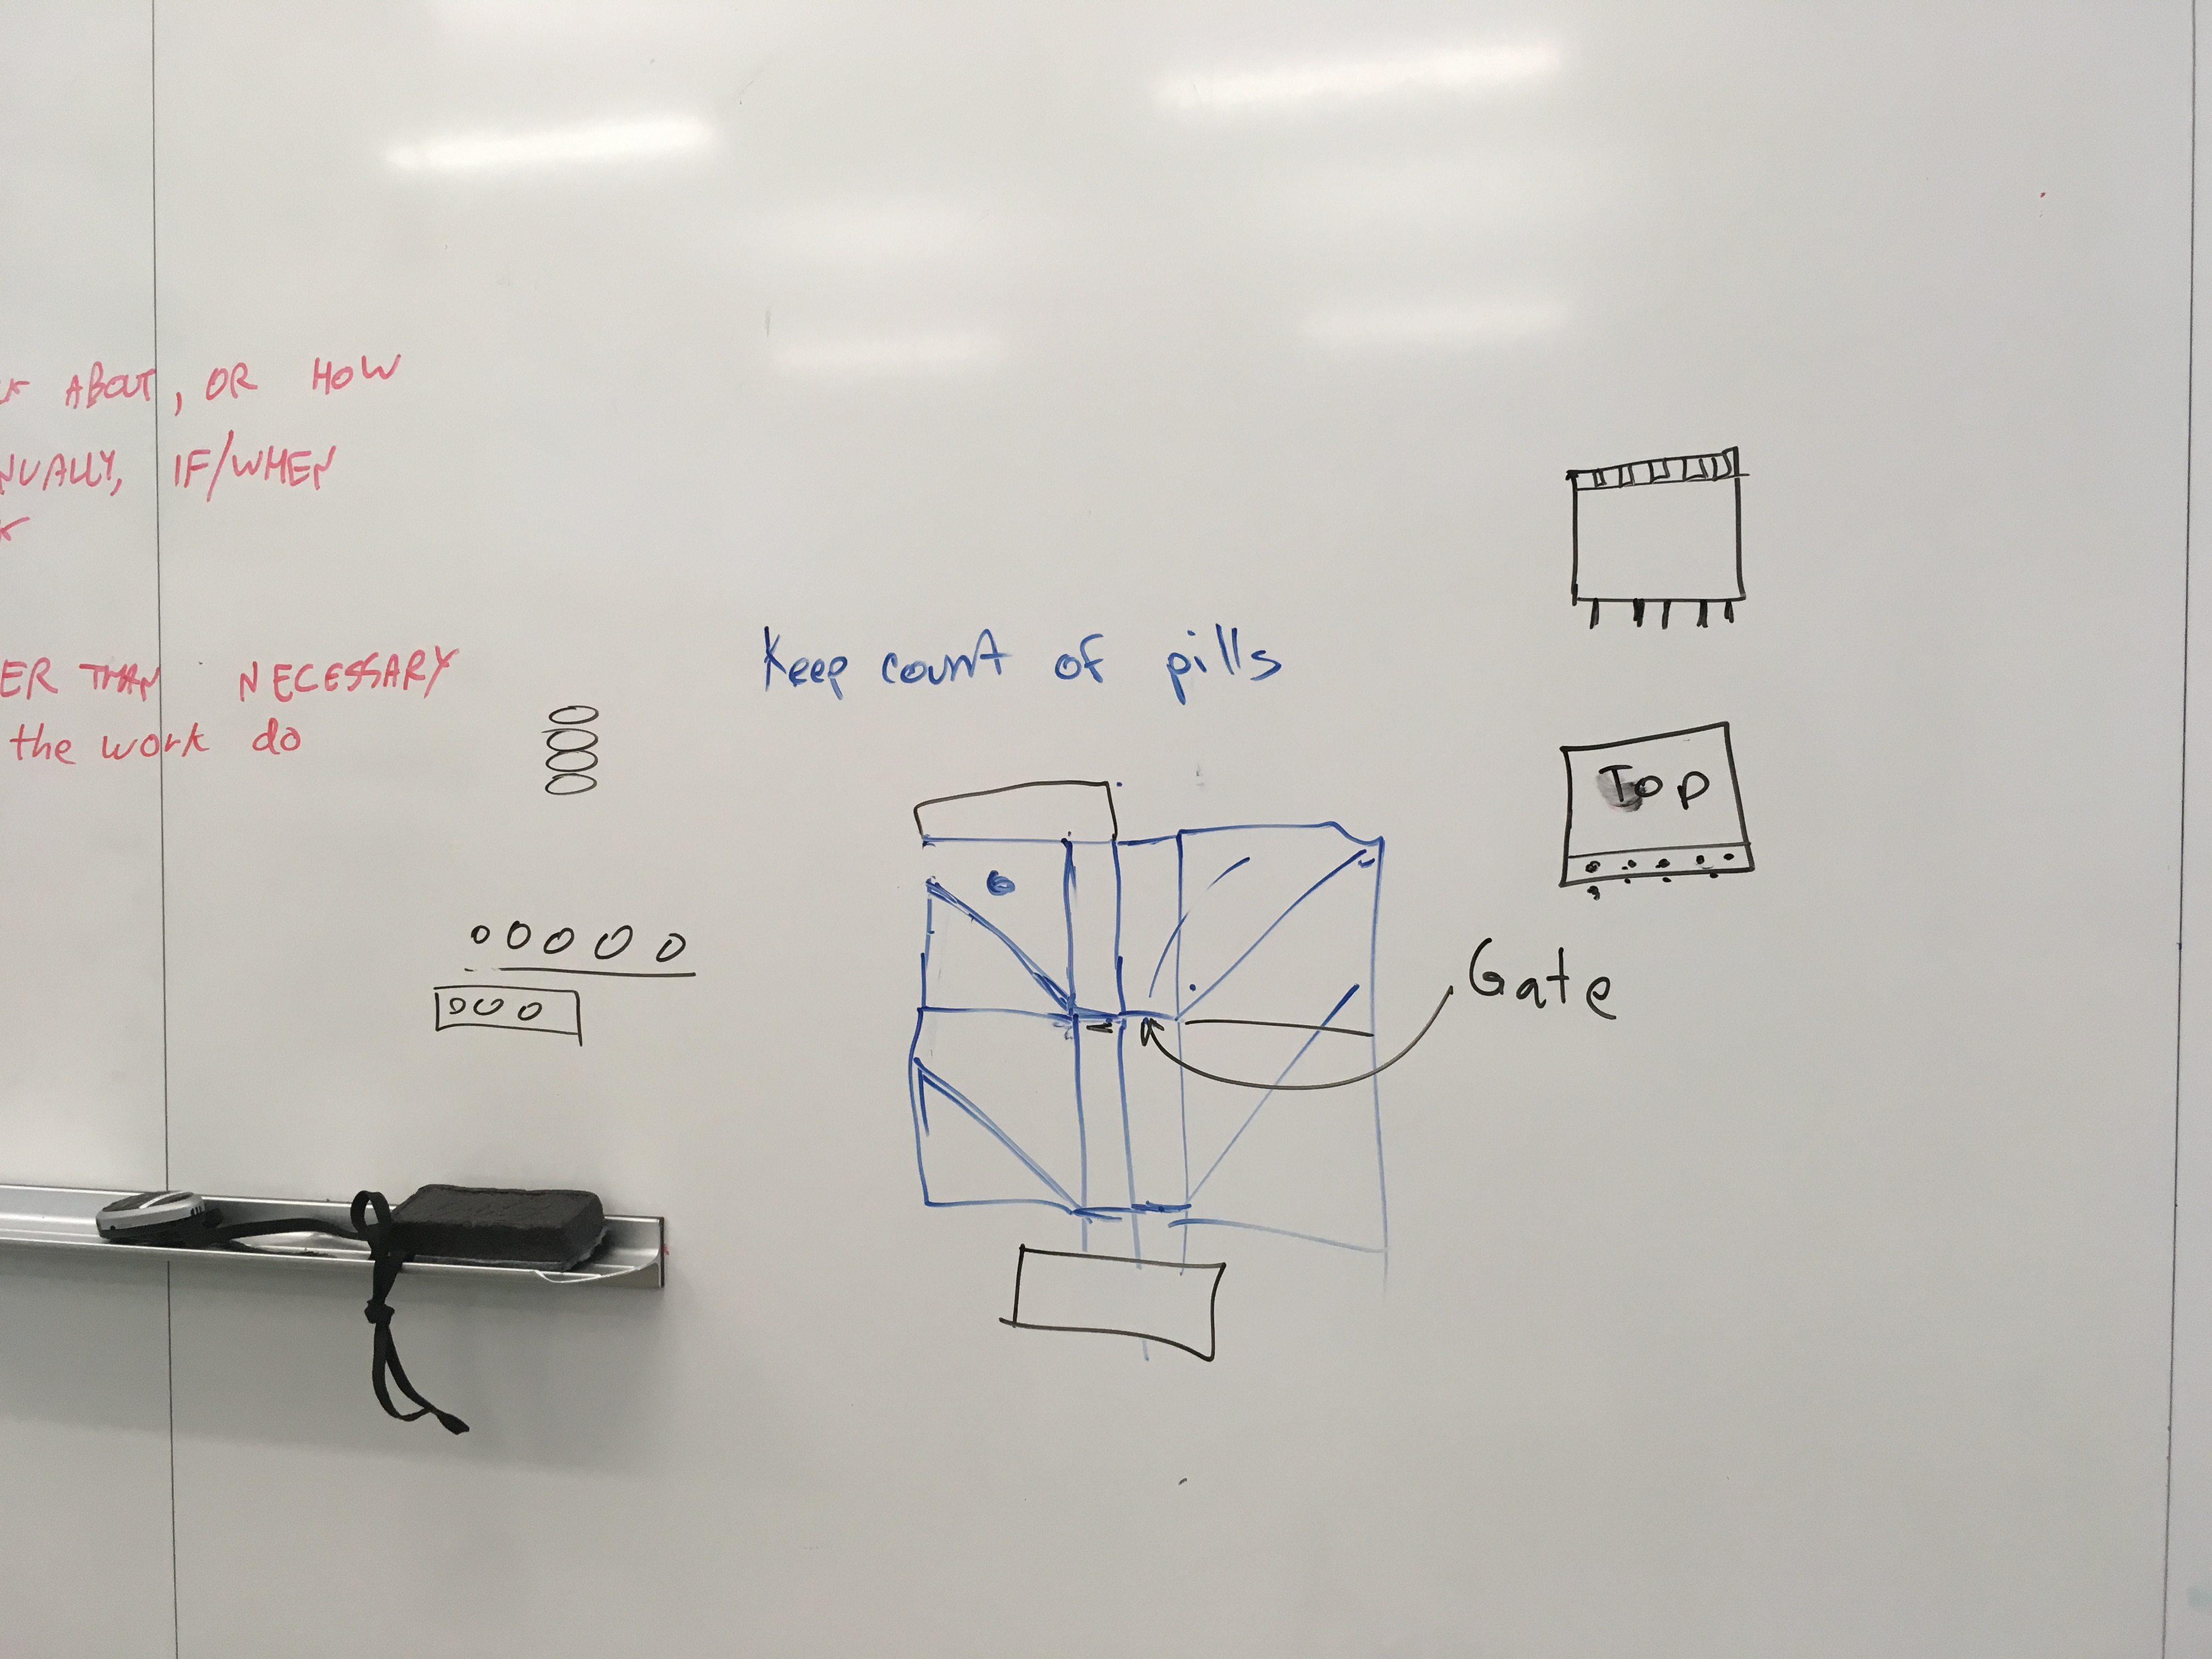 ABOUT, OR HOW
IF/WHEN
THAN NECESSARY
the work do
Keep count of pills
Top
Gate